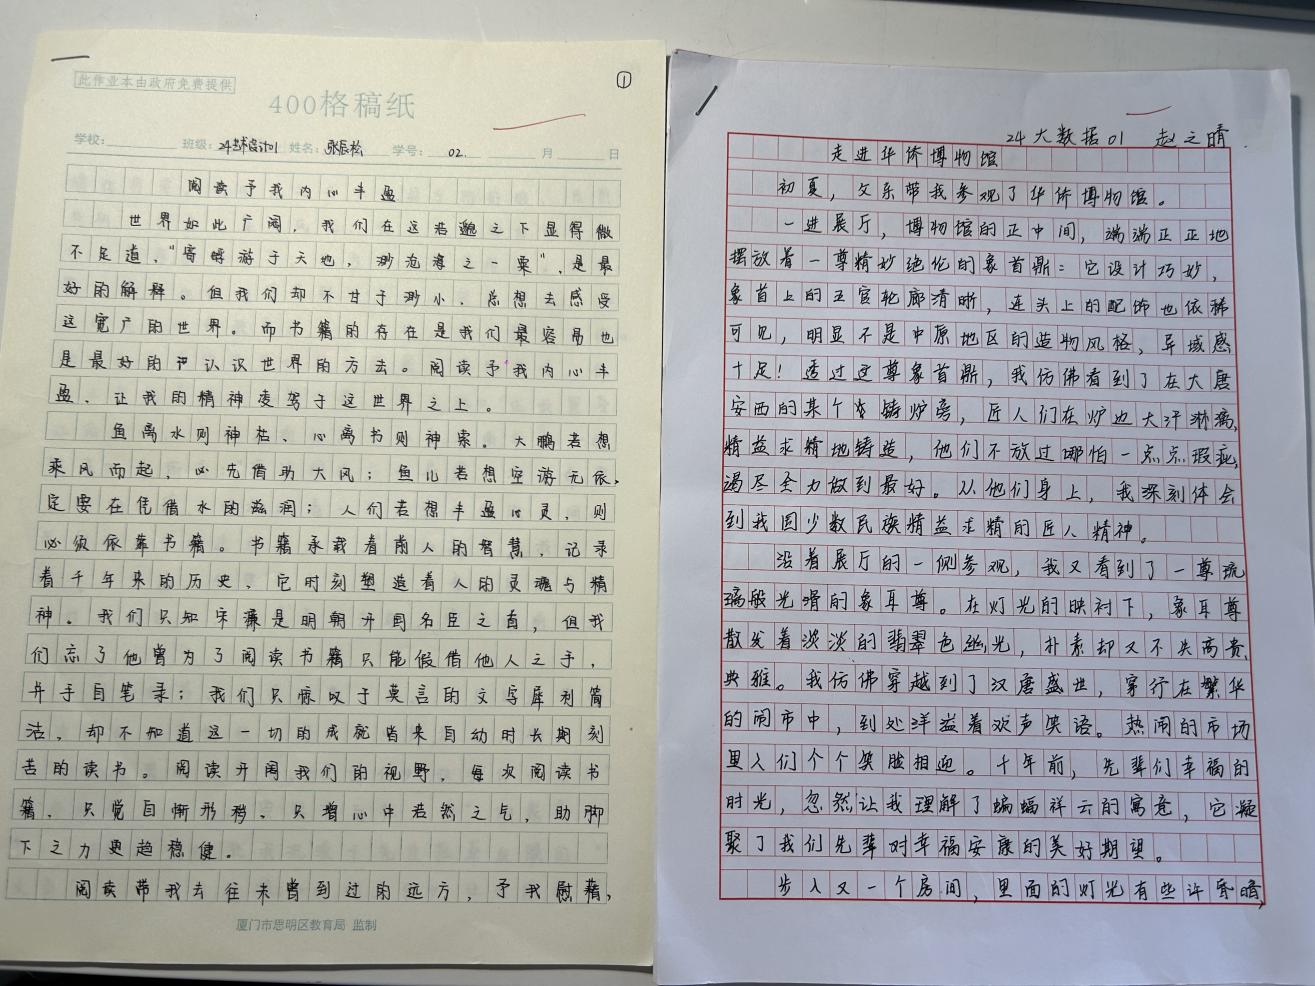 此作业本由政府免费提供
①
400格稿纸
学校: 班级: 24艺术设计01 姓名: 张辰松 学号: 02. 月 日
阅读予我内心丰盈
世界如此广阔，我们在这苍邈之下显得微
不足道，“寄蜉游于天地，渺沧海之一粟”，是最
好的解释。但我们却不甘于渺小，总想去感受
这宽广的世界。而书籍的存在是我们最容易也
是最好的认识世界的方去。阅读予我内心丰
盈、让我的精神凌驾于这世界之上。
鱼离水则神枯、心离书则神索。大鹏若想
乘风而起，必先借助大风；鱼儿若想空游无依，
定要在凭借水的滋润；人们若想丰盈心灵，则
必须依靠书籍。书籍承载着前人的智慧，记录
着千年来的历史、它时刻塑造着人的灵魂与精
神。我们只知宋濂是明朝开国名臣之首，但我
们忘了他曾为了阅读书籍只能假借他人之手，
并手自笔录；我们只惊叹于莫言的文字犀利简
洁，却不知道这一切的成就皆来自幼时长期刻
苦的读书。阅读开阔我们的视野，每次阅读书
籍、只觉自惭形秽、只增心中若然之气，助脚
下之力更趋稳健。
阅读带我去往未曾到过的远方，予我慰藉，
厦门市思明区教育局 监制
24大数据01 赵之晴
走进华侨博物馆
初夏，父亲带我参观了华侨博物馆。
一进展厅，博物馆的正中间，端端正正地
摆放着一尊精妙绝伦的象首鼎：它设计巧妙，
象首上的五官轮廓清晰，连头上的配饰也依稀
可见，明显不是中原地区的造物风格，异域感
十足！透过这尊象首鼎，我仿佛看到了在大唐
安西的某个铸炉旁，匠人们在炉边大汗淋漓，
精益求精地铸造，他们不放过哪怕一点点瑕疵，
竭尽全力做到最好。从他们身上，我深刻体会
到我国少数民族精益求精的匠人精神。
沿着展厅的一侧参观，我又看到了一尊琉
璃般光滑的象耳尊。在灯光的映衬下，象耳尊
散发着淡淡的翡翠色幽光，朴素却又不失高贵、
典雅。我仿佛穿越到了汉唐盛世，穿行在繁华
的闹市中，到处洋溢着欢声笑语。热闹的市场
里人们个个笑脸相迎。千年前，先辈们幸福的
时光，忽然让我理解了蝙蝠祥云的寓意，它凝
聚了我们先辈对幸福安康的美好期望。
步入又一个房间，里面的灯光有些许昏暗，